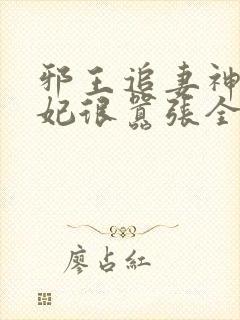 邪王追妻神
妃很囂張全
廖占紅